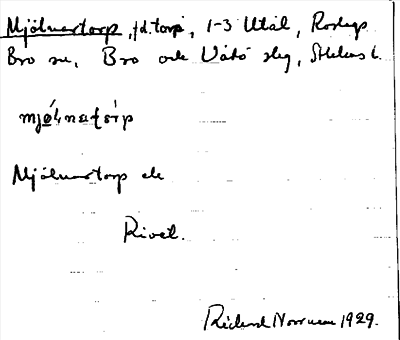 Mjölnartorp, f.d. torp, 1-3 Utål, Roslags
Bro sn, Bro och Vätö slg, Sthlms l.
Mjölnartorp
Rivet.
Rickard Norrman 1929.